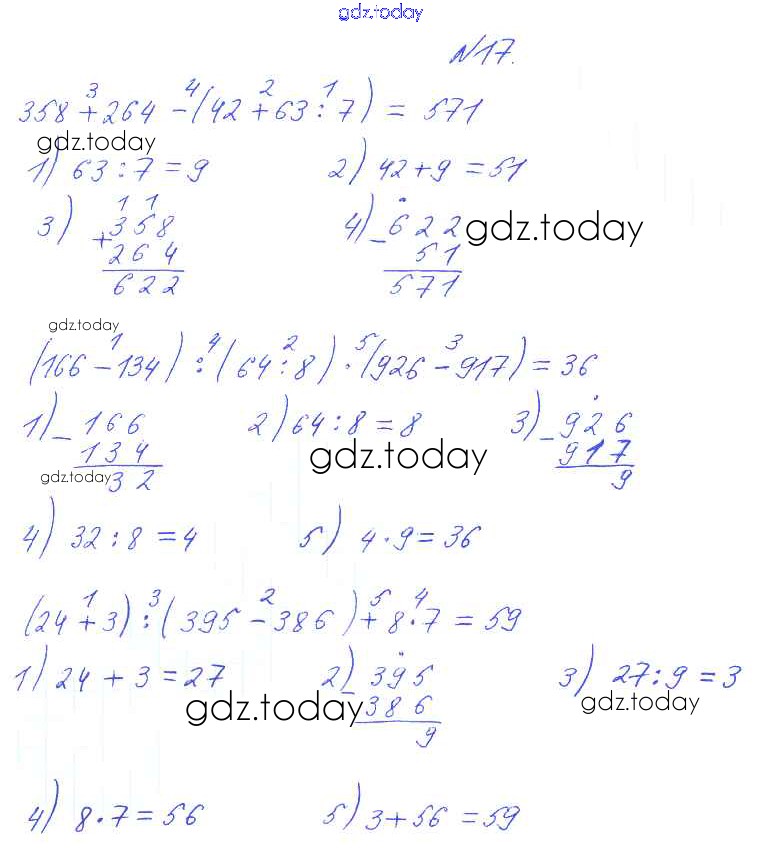 gdz.today
№17.
3 4 2 1
358 + 264 - (42 + 63 : 7) = 571
gdz.today
1) 63 : 7 = 9 2) 42 + 9 = 51
1 1
3) + 358 4) - 622 gdz.today
264 51
622 571
gdz.today
1 4 2 5 3
(166 - 134) : (64 : 8) · (926 - 917) = 36
1) - 166 2) 64 : 8 = 8 3) - 926
134 917
gdz.today
gdz.today 32 9
4) 32 : 8 = 4 5) 4 · 9 = 36
1 3 2 5 4
(24 + 3) : (395 - 386) + 8 · 7 = 59
1) 24 + 3 = 27 2) - 395 3) 27 : 9 = 3
gdz.today 386 gdz.today
9
4) 8 · 7 = 56 5) 3 + 56 = 59